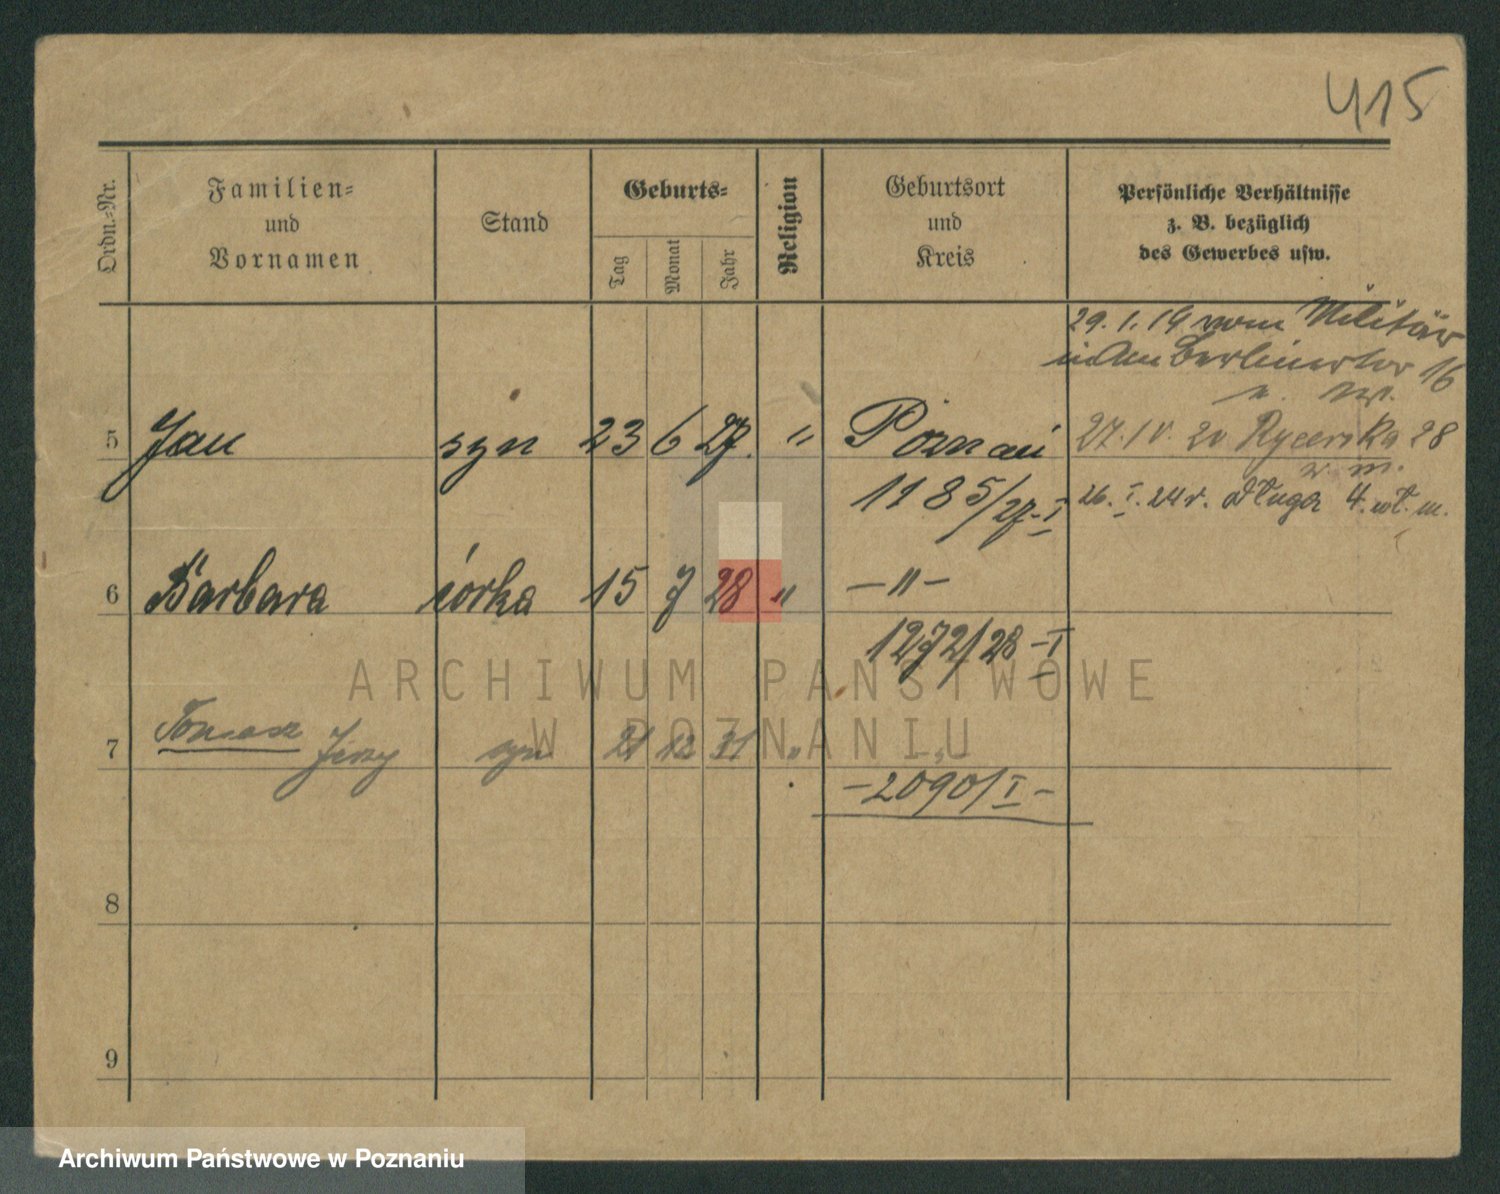 415
Ordn.=Nr.
Familien=
und
Vornamen
Stand
Geburts=
Tag
Monat
Jahr
Religion
Geburtsort
und
Kreis
Persönliche Verhältnisse
z. B. bezüglich
des Gewerbes usw.
29. 1. 19 vom Militär
Am Berlinertor 16
5 Jan syn 23 6 27. " Poznań 27. IV. 20 Rycerska 28
w. m.
1185/27-I 26. I. 24 r. Długa 4. wł. m.
6 Barbara córka 15 7 28 " — " —
1272/28 - I
7 Tomasz Jerzy syn 21 12 31 " "
- 2090/I -
8
9
ARCHIWUM PAŃSTWOWE
W POZNANIU
Archiwum Państwowe w Poznaniu